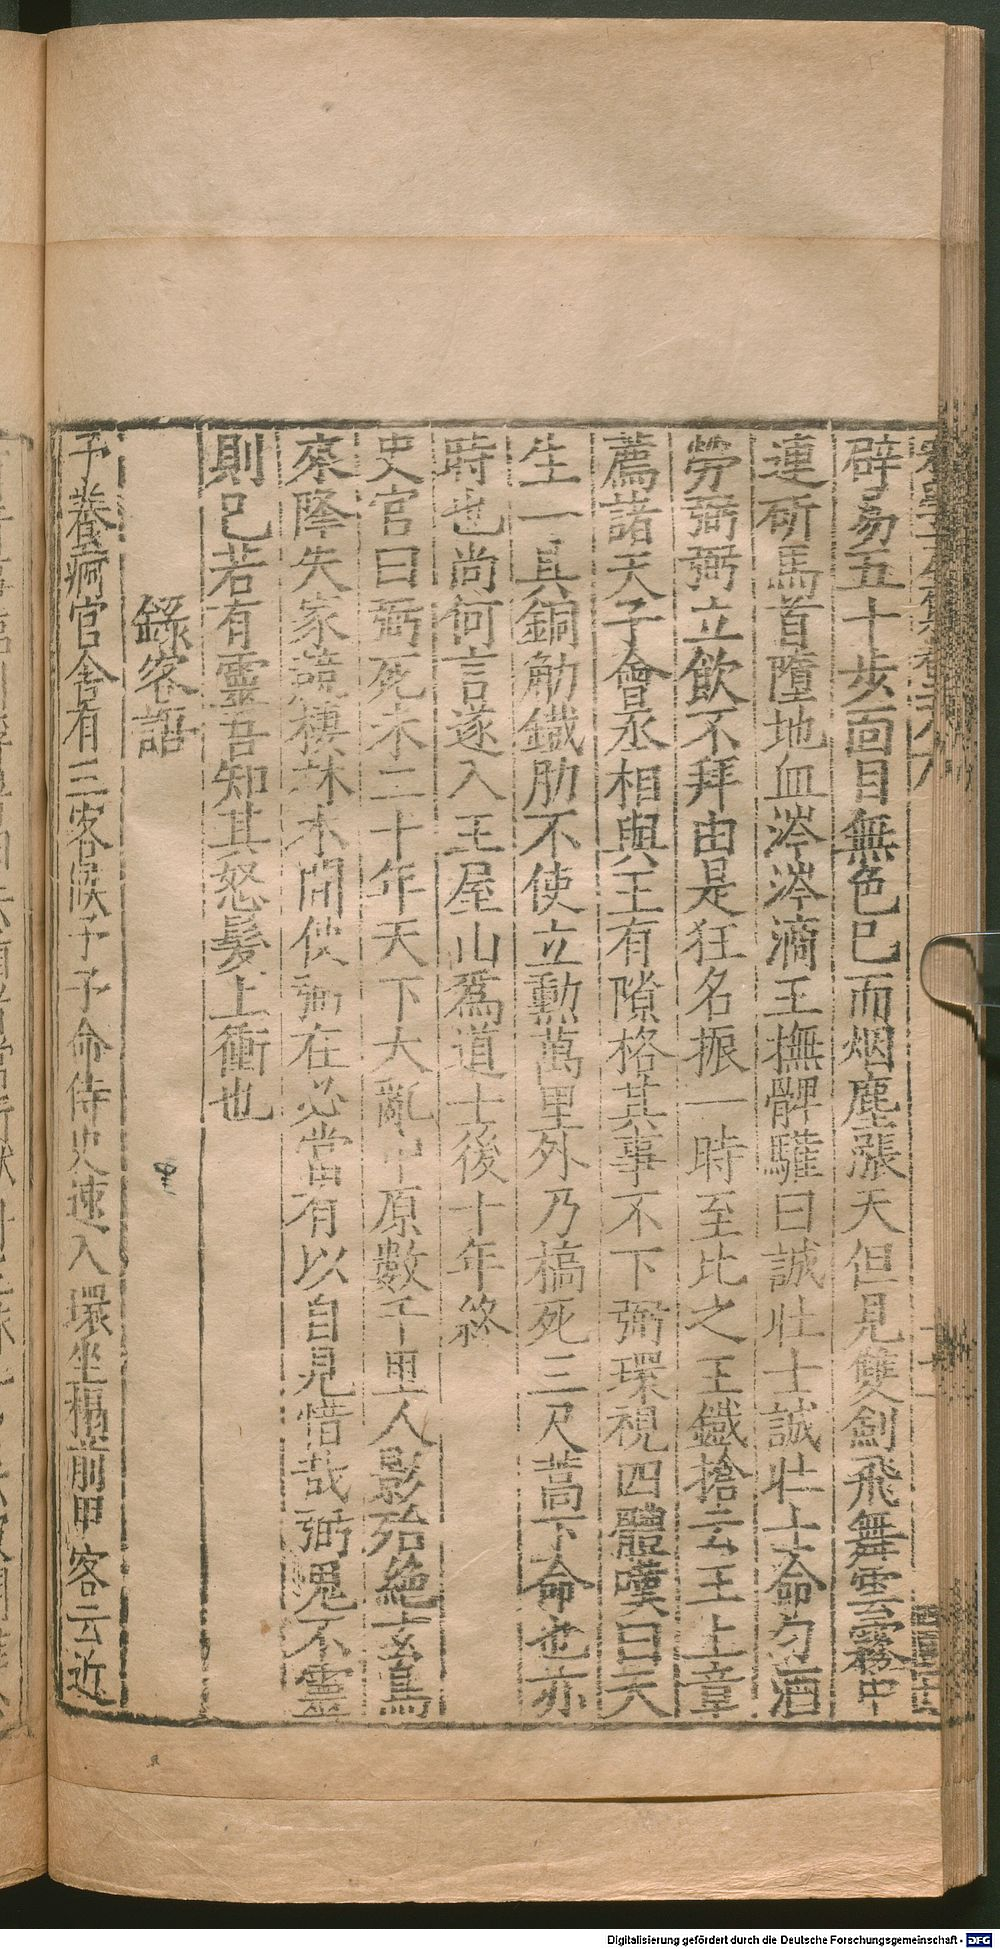 辟易五十步面目無色已而烟塵漲天但見雙劍飛舞雲霧中
連斫馬首墮地血涔涔滴王撫髀驩曰誠壯士誠壯士命勺酒
勞弼弼立飲不拜由是狂名振一時至比之王鐵搶云王上章
薦諸天子會丞相與王有隙格其事不下弼環視四體嘆曰天
生一具銅觔鐵肋不使立勳萬里外乃槁死三尺蒿下命也亦
時也尚何言遂入王屋山爲道士後十年終
史官曰弼死未二十年天下大亂中原數千里人影殆絶玄鳥
來降失家競棲林木間使弼在必當有以自見惜哉弼鬼不靈
則已若有靈吾知其怒髮上衝也
錄客語
予養痾官舍有三客候予予命侍史速入環坐榻前甲客云近
Digitalisierung gefördert durch die Deutsche Forschungsgemeinschaft - DFG